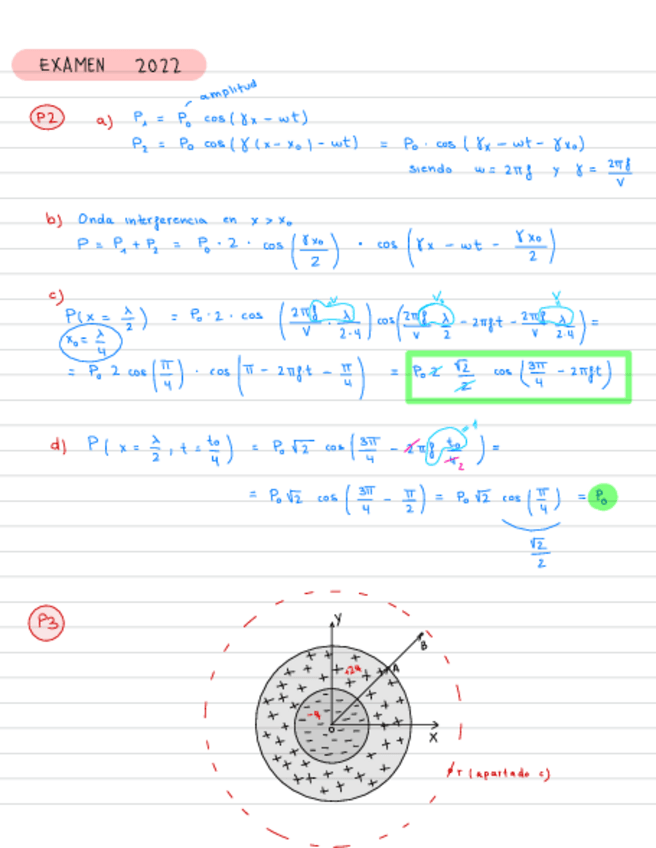 EXAMEN 2022
amplitud
P2 a) P₁ = P₀ cos(γx - wt)
P₂ = P₀ cos(γ(x - x₀) - wt) = P₀ · cos(γx - wt - γx₀)
siendo w = 2πf y γ = 2πf/V
b) Onda interferencia en x > x₀
P = P₁ + P₂ = P₀ · 2 · cos(γx₀/2) · cos(γx - wt - γx₀/2)
c)
P(x = λ/2) = P₀ · 2 · cos(2πf/V · λ/2·4) cos(2πf/V λ/2 - 2πft - 2πf/V λ/2·4) =
x₀ = λ/4
= P₀ 2 cos(π/4) · cos(π - 2πft - π/4) = P₀ 2 √2/2 cos(3π/4 - 2πft)
d) P(x = λ/2, t = t₀/4) = P₀ √2 cos(3π/4 - 2πf t₀/4 2) =
= P₀ √2 cos(3π/4 - π/2) = P₀ √2 cos(π/4) = P₀
√2/2
P3
Y
B
+2q
A
-q
O
X
r (apartado c)